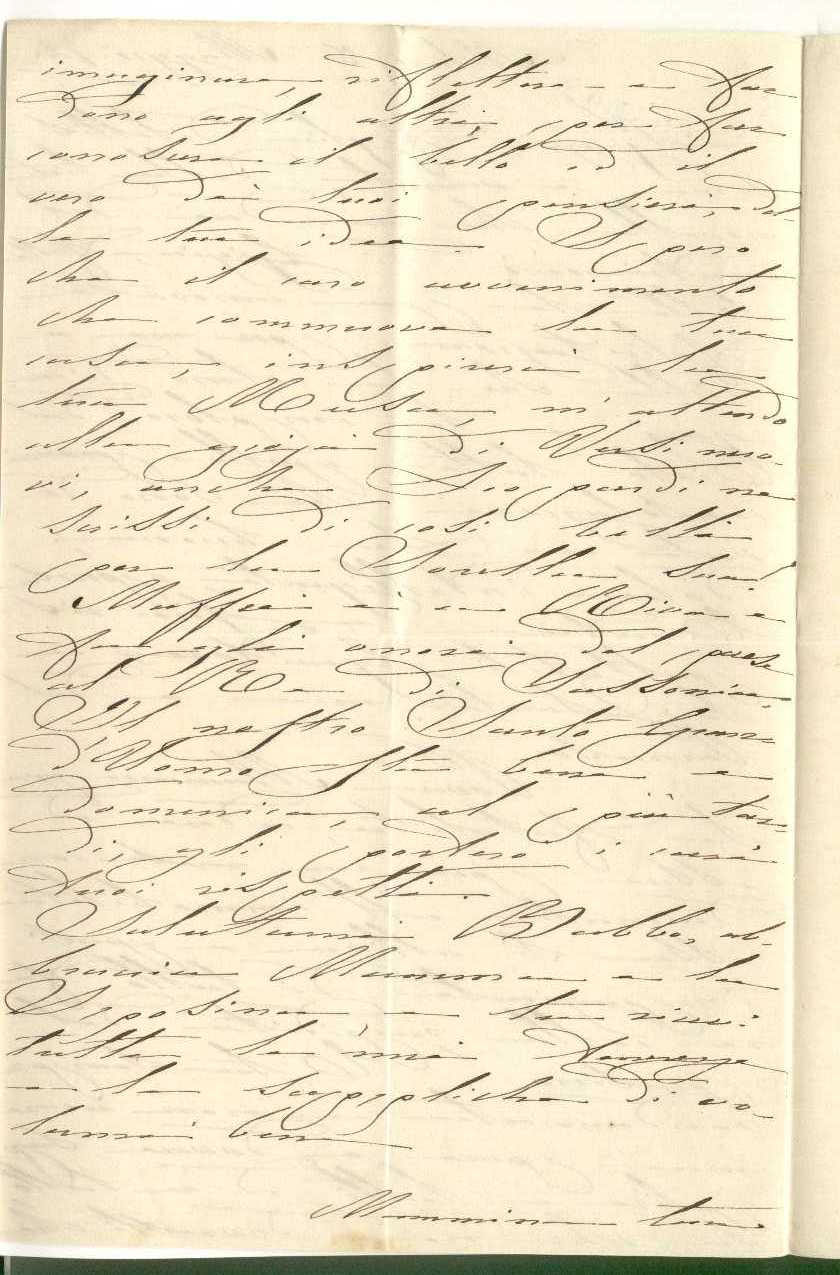 imaginare, riflettere - e far
dono agli altri, per far
conoscere il bello ed il
vero dei tuoi pensieri, del-
le tue idee. Spero
che il caro avvenimento
che commuove la tua
casa, inspirerà la
tua Musa, m'attendo
alla gioja di Versi nuo-
vi, anche Leopardi ne
scrisse di così belli
per la Sorella sua!
Maffei è a Riva e
fa gli onori del paese
al Re di Sassonia,
Il nostro Santo Gran
d'Uomo sta bene e
Domenica, al più tar-
di, gli porterò i cari
tuoi rispetti.
Salutami Babbo, ab-
braccia Mamma e la
Sposina e tu rice:
tutte le mie
e le suppliche di vo-
lermi bene
Mammina tua